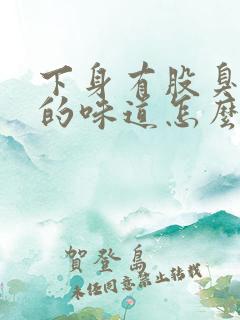 下身有股臭
的味道怎麼
賀登島
未任同意禁止转载